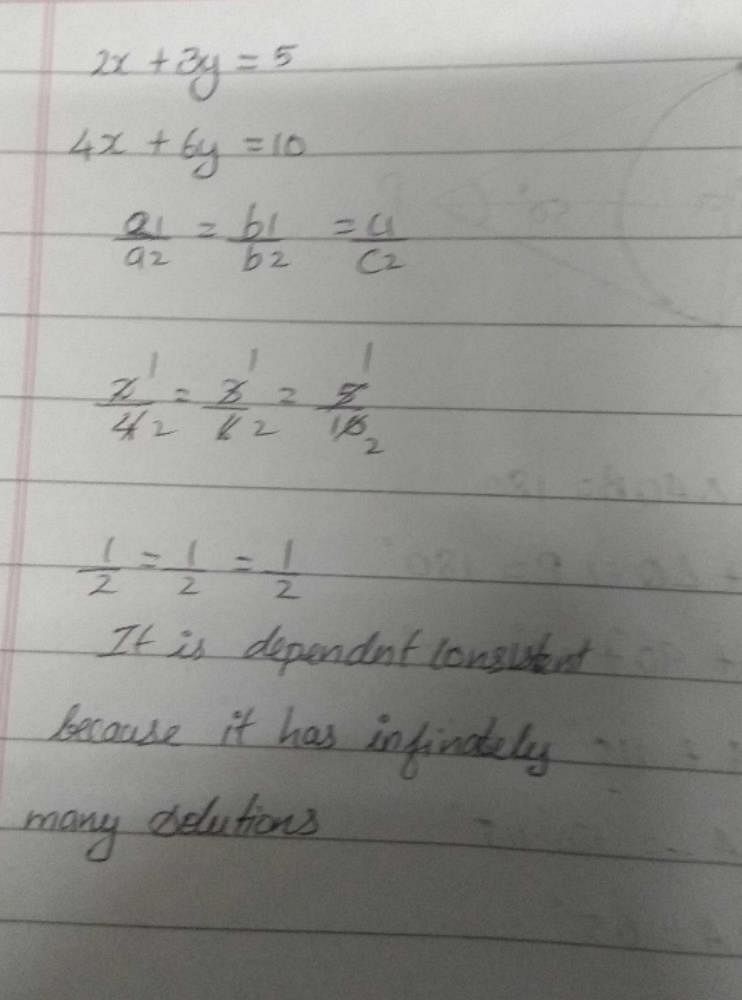 2x + 3y = 5
4x + 6y = 10
a1/a2 = b1/b2 = c1/c2
2 1/4 2 = 3 1/6 2 = 5 1/10 2
1/2 = 1/2 = 1/2
It is dependnt consistent
because it has infinately
many solutions